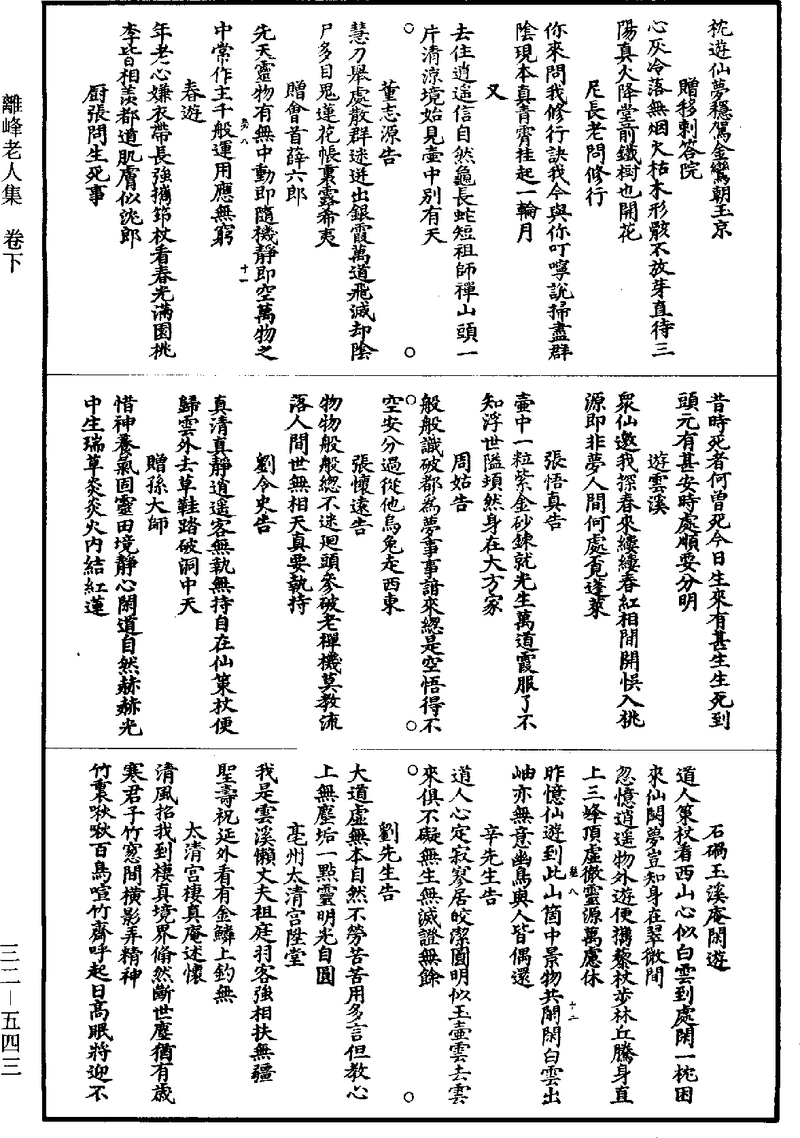 枕遊仙夢穩駕金鸞朝玉京
贈移剌答院
心灰冷落無烟火枯木形骸不放芽直待三
陽真火降堂前鐵樹也開花
尼長老問修行
你來問我修行訣我今與你叮嚀說掃盡群
陰現本真青霄挂起一輪月
又
去住逍遥信自然龜長蛇短祖師禪山頭一
片清涼境始見壷中別有天
董志源告
慧刀舉處散群迷迸出銀霞萬道飛滅却陰
尸多目鬼蓮花帳裏露希夷
贈會首薛六郎
先天靈物有無中動即隨機靜即空萬物之
中常作主千般運用應無窮
春遊
年老心嫌衣帶長強攜笻杖看春光滿園桃
李皆相羨都道肌膚似沈郎
厨張問生死事
昔時死者何曾死今日生來有甚生生死到
頭元有甚安時處順要分明
遊雲溪
衆仙邀我探春來縷縷春紅相間開悮入桃
源即非夢人間何處覓蓬萊
張悟真告
壷中一粒紫金砂鍊就光生萬道霞服了不
知浮世隘塤然身在大方家
周姑告
般般識破都為夢事事諳來緫是空悟得不
空安分過從他烏兔走西東
張懷遠告
物物般般緫不迷迴頭參破老禪機莫教流
落人間世無相天真要執持
劉令史告
真清真靜逍遥客無執無持自在仙策杖便
歸雲外去草鞋踏破洞中天
贈孫大師
惜神養氣固靈田境靜心閑道自然赫赫光
中生瑞草炎炎火内結紅蓮
石碣玉溪庵閑遊
道人策杖看西山心似白雲到處閑一枕困
來仙闕夢豈知身在翠微間
忽憶逍遥物外遊便攜藜杖步林丘騰身直
上三峰頂虛徹靈源萬慮休
昨憶仙遊到此山箇中景物共閑閑白雲出
岫亦無意幽鳥與人皆偶還
辛先生告
道人心定寂寥居皎潔圓明似玉壷雲去雲
來俱不礙無生無滅證無餘
劉先生告
大道虛無本自然不勞苦苦用多言但教心
上無塵垢一點靈明光自圓
亳州太清宫陞堂
我是雲溪懶丈夫祖庭羽客強相扶無疆
聖壽祝延外看有金鱗上釣無
太清宫棲真庵述懷
清風招我到棲真境界翛然斷世塵猶有歲
寒君子竹窓間横影弄精神
竹裏啾啾百鳥喧竹齋呼起日高眠將迎不
離峰老人集　卷下
三二—五四三